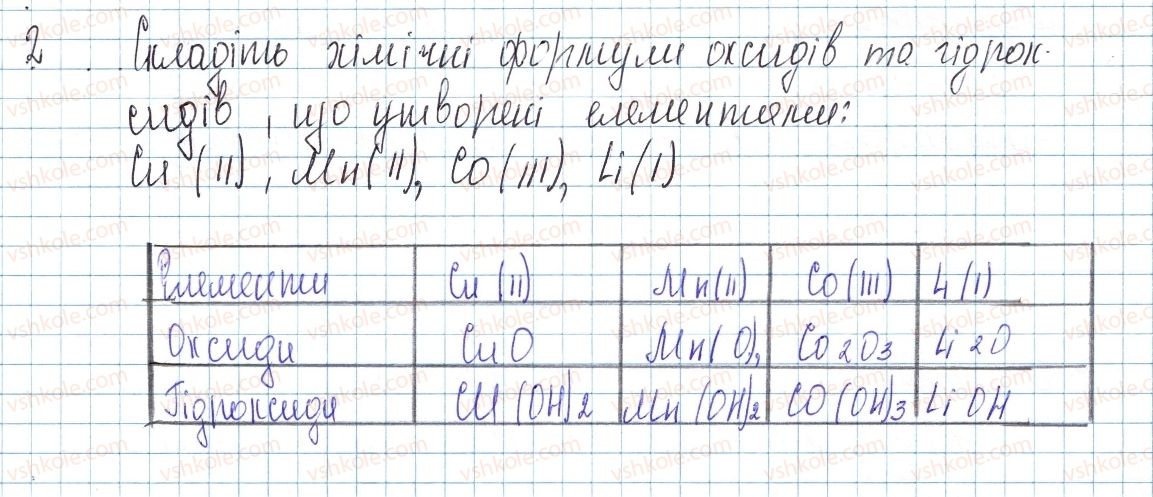 2. Складіть хімічні формули оксидів та гідрок-
сидів, що утворені елементами:
Cu (II), Mn (II), Co (III), Li (I)
Елементи Cu (II) Mn (II) Co (III) Li (I)
Оксиди CuO Mn(O), Co2O3 Li2O
Гідроксиди Cu (OH)2 Mn (OH)2 CO (OH)3 LiOH
vshkole.com